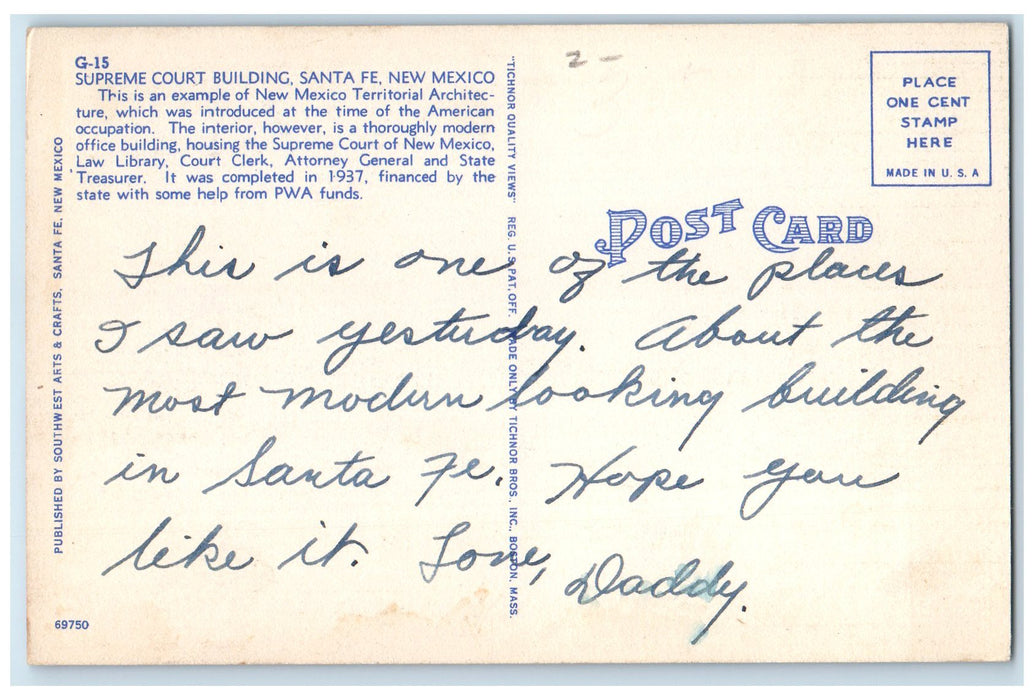 G-15
SUPREME COURT BUILDING, SANTA FE, NEW MEXICO
This is an example of New Mexico Territorial Architec-
ture, which was introduced at the time of the American
occupation. The interior, however, is a thoroughly modern
office building, housing the Supreme Court of New Mexico,
Law Library, Court Clerk, Attorney General and State
Treasurer. It was completed in 1937, financed by the
state with some help from PWA funds.
PUBLISHED BY SOUTHWEST ARTS & CRAFTS, SANTA FE, NEW MEXICO
69750
"TICHNOR QUALITY VIEWS" REG. U. S. PAT. OFF. MADE ONLY BY TICHNOR BROS., INC., BOSTON, MASS.
2 -
PLACE
ONE CENT
STAMP
HERE
MADE IN U. S. A
POST CARD
This is one of the places
I saw yesturday. About the
most modern looking building
in Santa Fe. Hope you
like it. Love, Daddy.